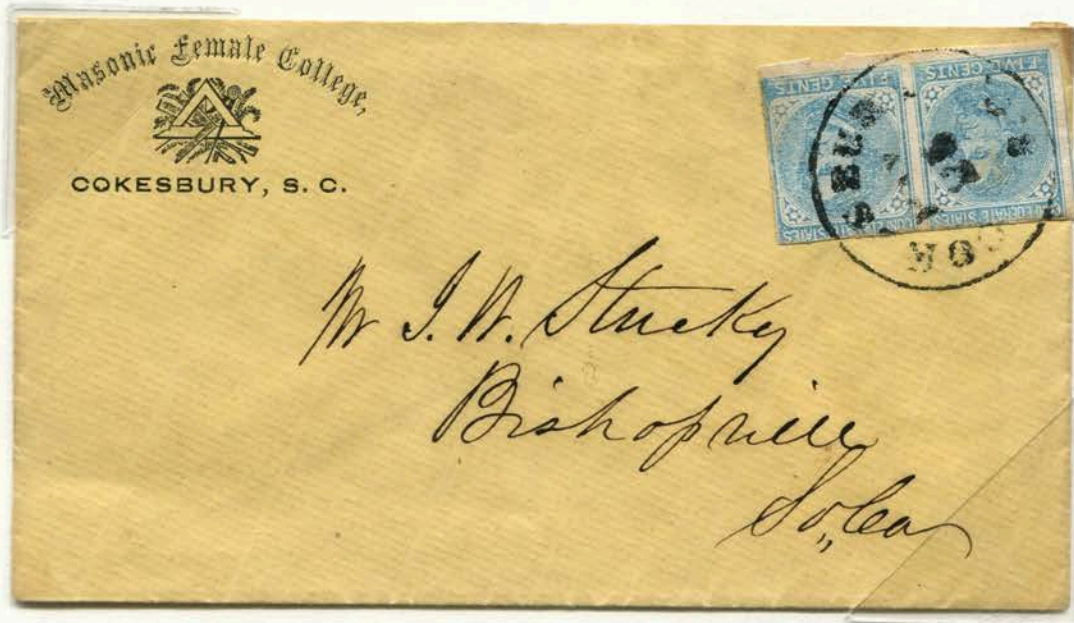 Masonic Female College,
COKESBURY, S. C.
FIVE CENTS
FIVE CENTS
Mr J. W. Stucky
Bishopville
So,, Ca